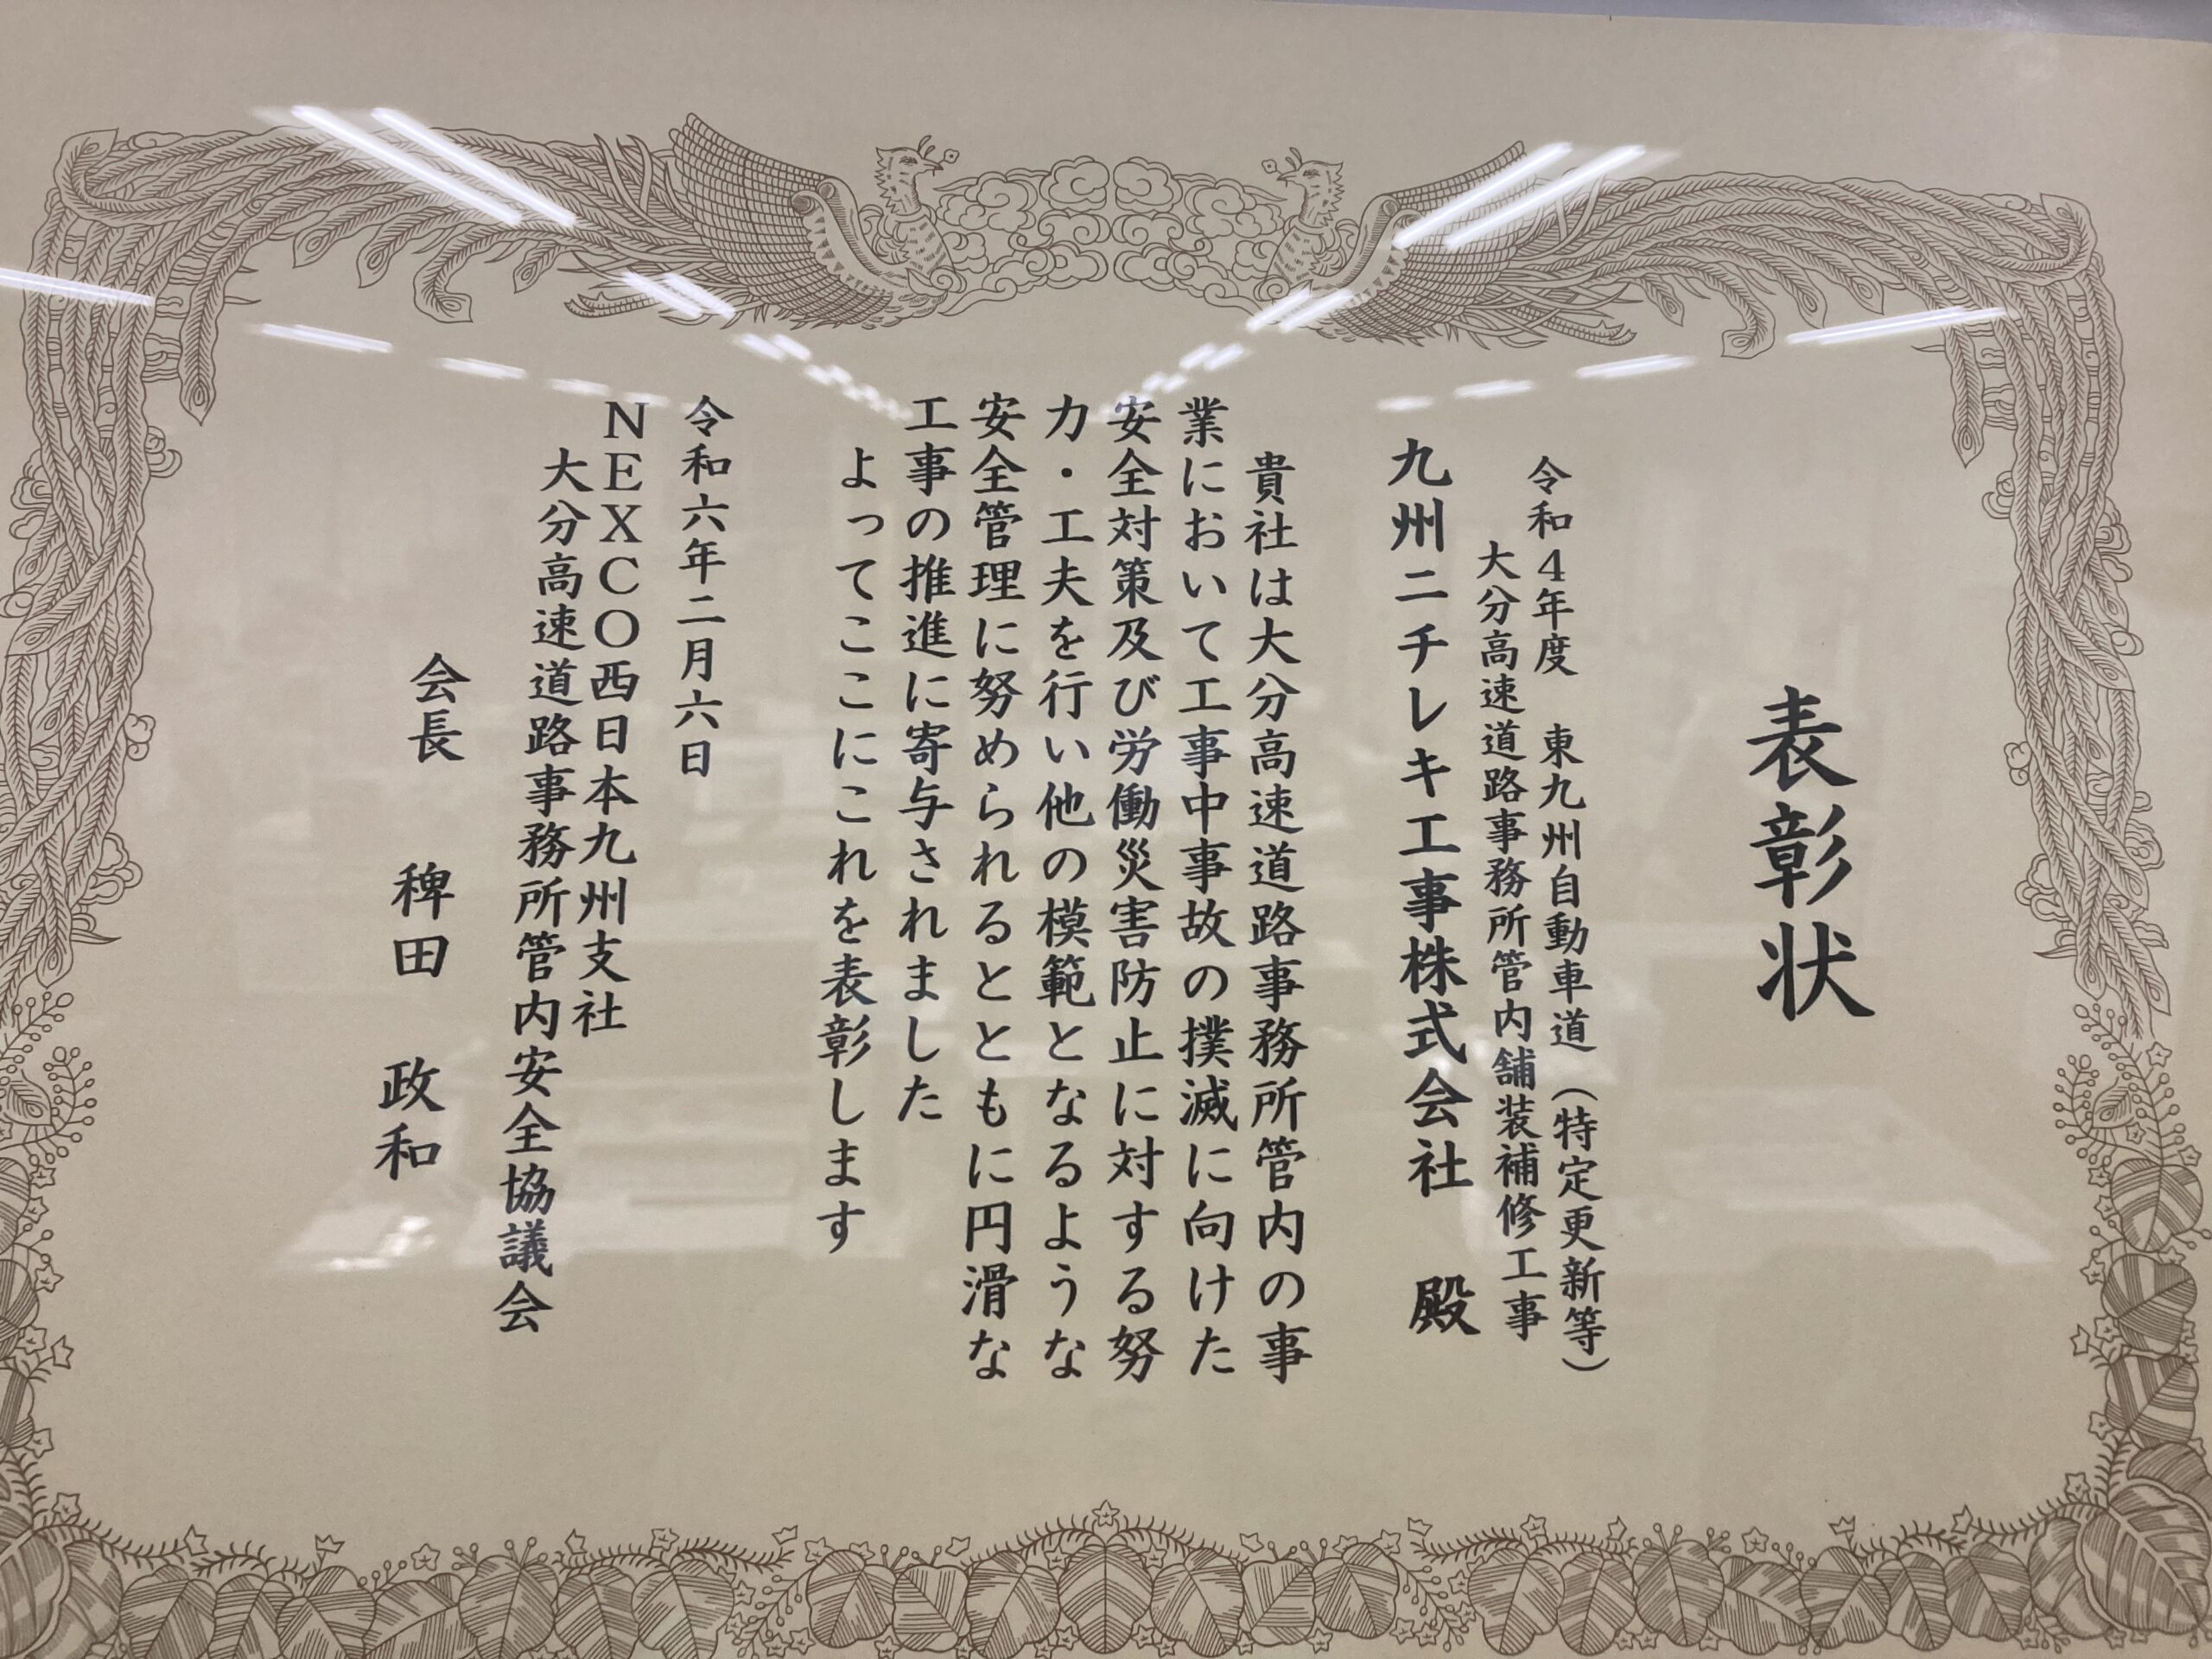 表彰状
令和4年度　東九州自動車道（特定更新等）
大分高速道路事務所管内舗装補修工事
九州ニチレキ工事株式会社　殿
貴社は大分高速道路事務所管内の事
業において工事中事故の撲滅に向けた
安全対策及び労働災害防止に対する努
力・工夫を行い他の模範となるような
安全管理に努められるとともに円滑な
工事の推進に寄与されました
よってここにこれを表彰します
令和六年二月六日
NEXCO西日本九州支社
大分高速道路事務所管内安全協議会
会長　稗田　政和